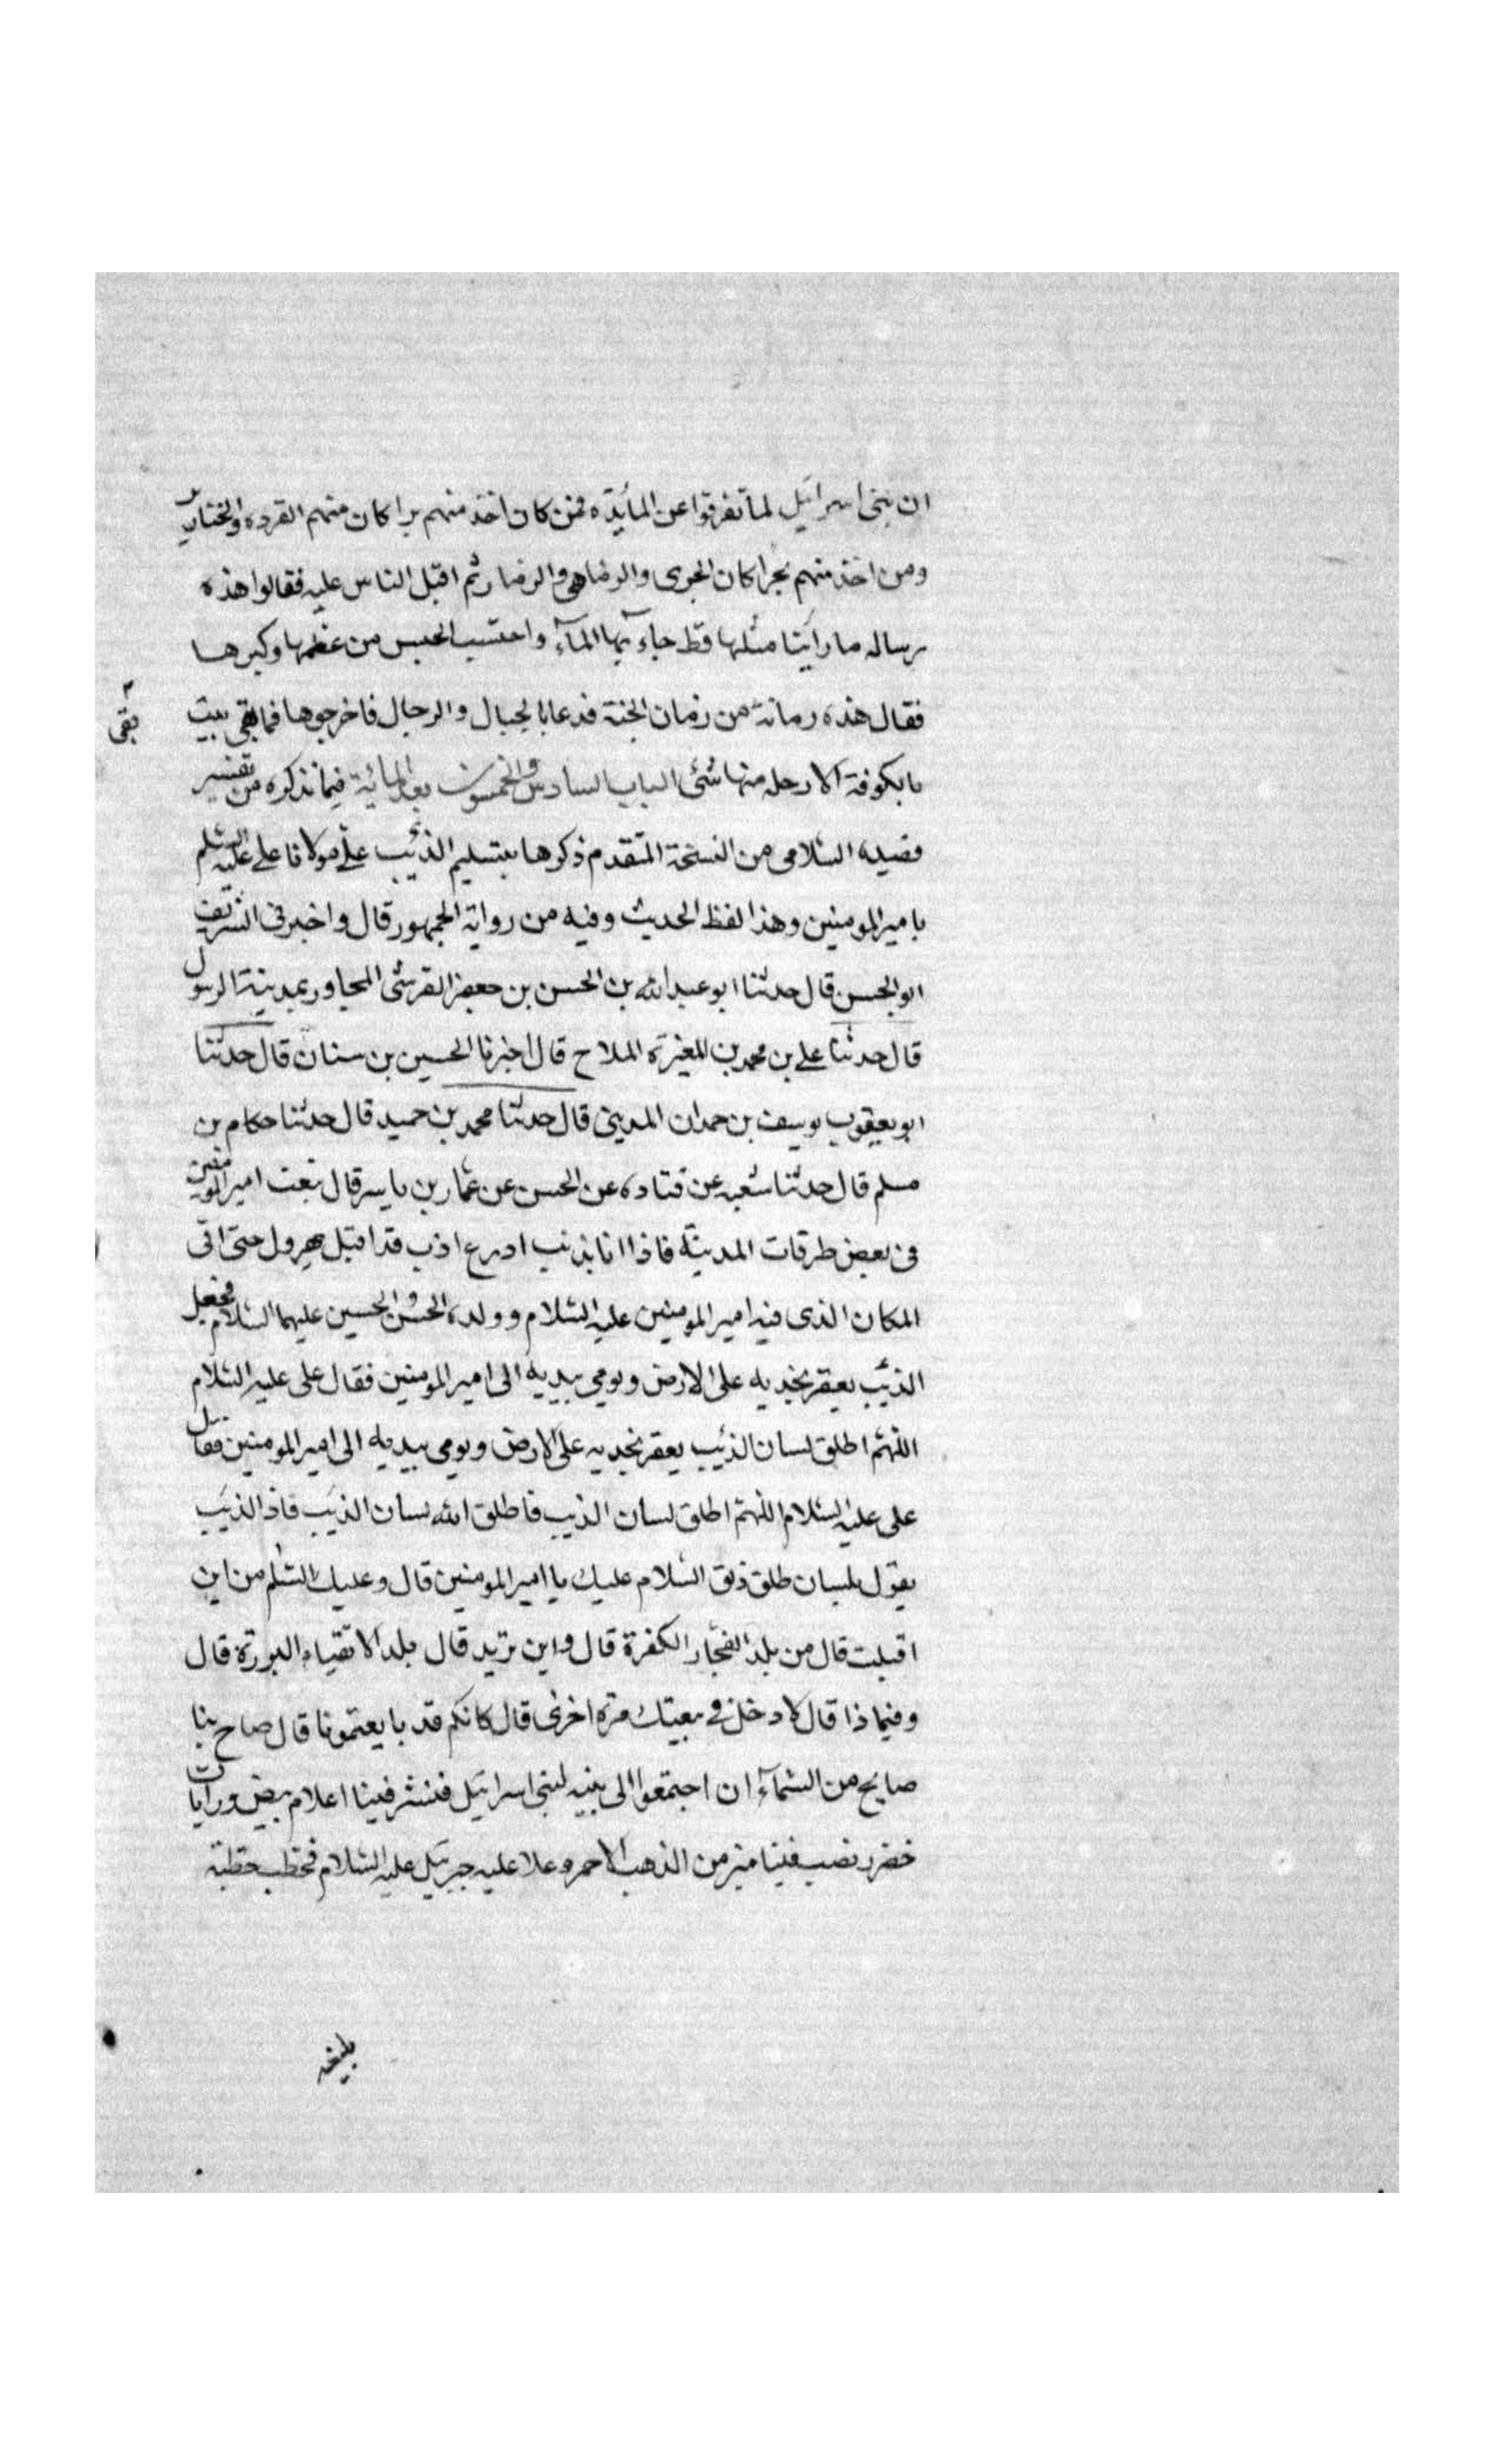 ان بنی اسرائیل لما تفرقوا عن المائدة فمن کان اخذ منهم برا کان منهم القرده والخنازیر
ومن اخذ منهم بحرا کان الجری والرضاهی والرضا رثم اقبل الناس علیه فقالوا هذه
رساله ما راینا مثلها قط جاء بها المآء واحتسب الحبس من عظمها وکبرها
فقال هذه رمانة من رمان الجنة فدعا بالحبال والرجال فاخرجوها فما بقی بیت
بقی
بالکوفة الا دخله منها شئ الباب السادس والخمسون بعد المائة فیما نذکره من تفسیر
قصیده السلامی من النسخة المتقدم ذکرها بتسلیم الذئب علی مولانا علی علیه السلم
بامیر المومنین وهذا لفظ الحدیث وفیه من روایة الجمهور قال واخبرنی الشریف
ابو الحسن قال حدثنا ابو عبد الله بن الحسن بن جعفر القرشی المجاور بمدینة الرسول
قال حدثنا علی بن محمد بن المغیرة الملاح قال اخبرنا الحسین بن سنان قال حدثنا
ابو یعقوب یوسف بن حمدان المدینی قال حدثنا محمد بن حمید قال حدثنا حکام بن
مسلم قال حدثنا شعبه عن قتاده عن الحسن عن عمار بن یاسر قال تبعت امیر المومنین
فی بعض طرقات المدینة فاذا انا بذئب ادرع اذب قد اقبل یهرول حتی اتی
المکان الذی فیه امیر المومنین علیه السلام وولده الحسن والحسین علیهما السلام فجعل
الذئب یعقر بخدیه علی الارض ویومی بیدیه الی امیر المومنین فقال علی علیه السلام
اللهم اطلق لسان الذئب یعقر بخدیه علی الارض ویومی بیدیه الی امیر المومنین فقال
علی علیه السلام اللهم اطلق لسان الذیب فاطلق الله لسان الذئب فاذ الذئب
یقول بلسان طلق ذلق السلام علیك یا امیر المومنین قال وعلیك السلم من این
اقبلت قال من بلد الفجار الکفرة قال واین ترید قال بلد الاتقیاء البررة قال
وفیما ذا قال لادخل فی بیعتك مرة اخری قال کانکم قد بایعتمونا قال صاح بنا
صایح من السمآء ان اجتمعوا الی بنیه لبنی اسرائیل فنشر فینا اعلام بیض ورایات
خضر ونصب فینا منبر من الذهب الاحمر وعلا علیه جبرئیل علیه السلام فخطب خطبة
بلیغه